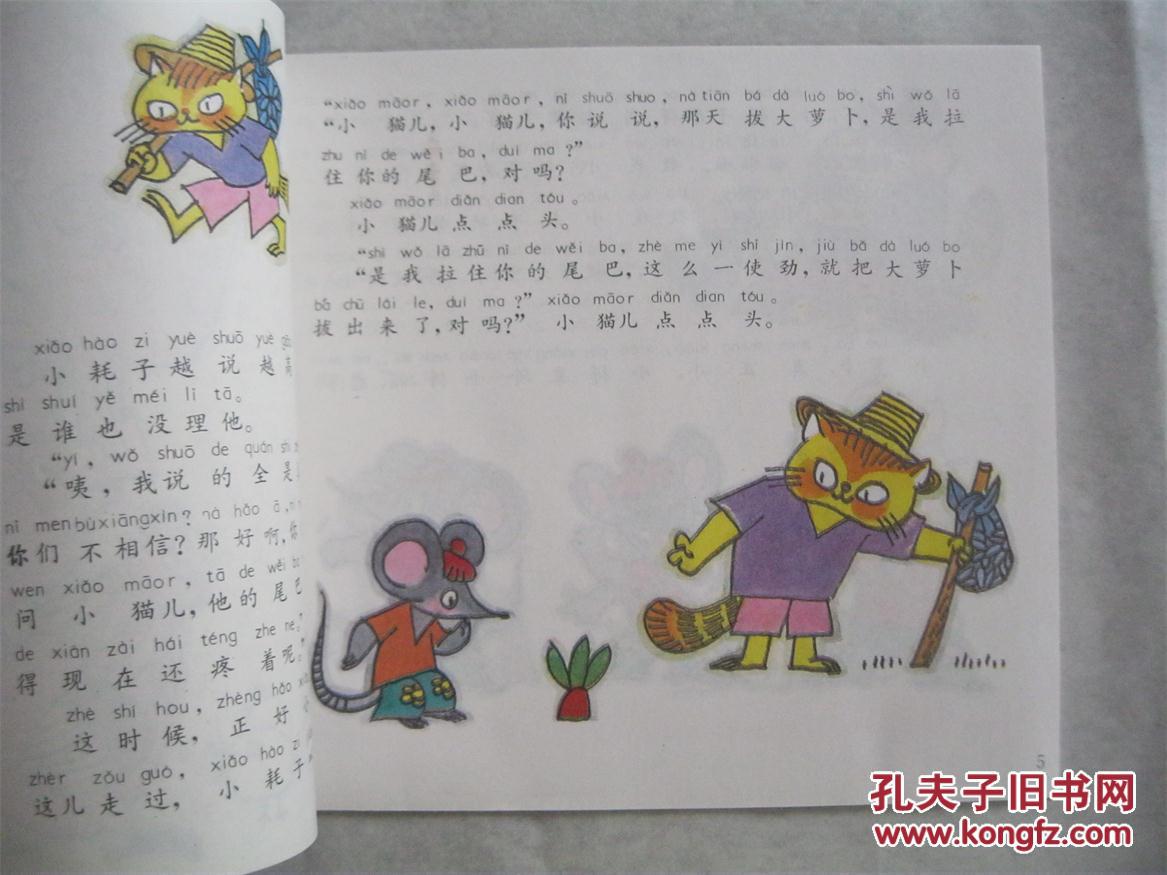 xiǎo hào zi yuè shuō yuè
小耗子越说越高
shì shuí yě méi lǐ tā。
是谁也没理他。
“yí，wǒ shuō de quán shì
“咦，我说的全是
nǐ men bù xiāng xìn？nà hǎo ā，
你们不相信？那好啊，你
wèn xiǎo māor，tā de wěi ba
问小猫儿，他的尾巴
de xiàn zài hái téng zhe ne。”
得现在还疼着呢。”
zhè shí hou，zhèng hǎo
这时候，正好
zhèr zǒu guò，xiǎo hào zi
这儿走过，小耗子
“xiǎo māor，xiǎo māor，nǐ shuō shuo，nà tiān bá dà luó bo，shì wǒ lā
“小猫儿，小猫儿，你说说，那天拔大萝卜，是我拉
zhu nǐ de wěi ba，duì ma？”
住你的尾巴，对吗？
xiǎo māor diǎn dian tóu。
小猫儿点点头。
“shì wǒ lā zhū nǐ de wěi ba，zhè me yì shǐ jìn，jiù bǎ dà luó bo
“是我拉住你的尾巴，这么一使劲，就把大萝卜
bá chū lái le，duì ma？” xiǎo māor diǎn dian tóu。
拔出来了，对吗？” 小猫儿点点头。
5
孔夫子旧书网
www.kongfz.com